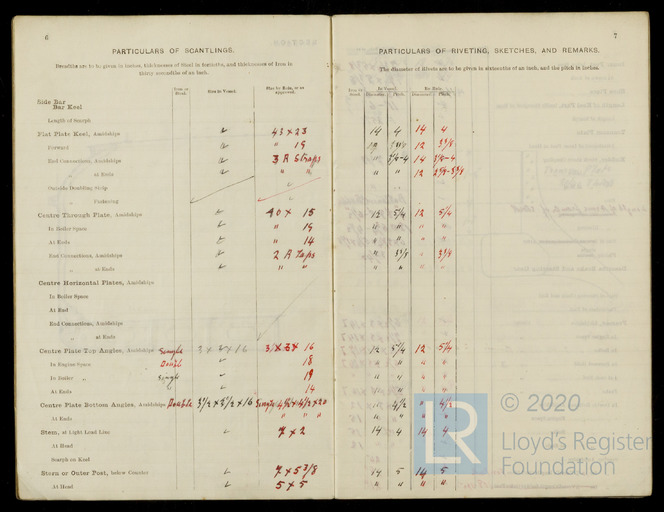 6
PARTICULARS OF SCANTLINGS.
Breadths are to be given in inches, thicknesses of Steel in fortieths, and thicknesses of Iron in
thirty seconds of an inch.
Iron or Steel. Size in Vessel. Size by Rule, or as Approved.
Side Bar
Bar Keel
Length of Scarph
Flat Plate Keel, Amidships 43 x 23
Forward " 19
End Connections, Amidships 3 R Straps
" at Ends " "
Outside Doubling Strip
" Fastening
Centre Through Plate, Amidships 40 x 15
In Boiler Space " 19
At Ends " 14
End Connections, Amidships 2 R Laps
" at Ends " "
Centre Horizontal Plates, Amidships
In Boiler Space
At End
End Connections, Amidships
" at Ends
Centre Plate Top Angles, Amidships Single 3 x 3 x 16 3 x 3 x 16
In Engine Space Doubl 18
In Boiler " Single 19
At Ends 14
Centre Plate Bottom Angles, Amidships Double 3 1/2 x 3 1/2 x 16 Single 4 1/2 x 4 1/2 x 20
At Ends " " "
Stem, at Light Load Line 7 x 2
At Head
Scarph on Keel
Stern or Outer Post, below Counter 7 x 5 3/8
At Head 5 x 5
7
PARTICULARS OF RIVETING, SKETCHES, AND REMARKS.
The diameter of Rivets are to be given in sixteenths of an inch, and the pitch in inches.
Iron or Steel. In Vessel. By Rule.
Diameter. Pitch. Diameter. Pitch.
14 4 14 4
12 3 3/8
14
12
12 5 1/4 12 5 1/4
" " " "
" " " "
" 3 3/8 " 3 3/8
" " " "
12 5 1/4 12 5 1/4
" " " "
" " " "
" " " "
" 4 1/2 " 4 1/2
" " " "
14 4 14 4
14 5 14 5
" " " "
© 2020
LR
Lloyd's Register
Foundation